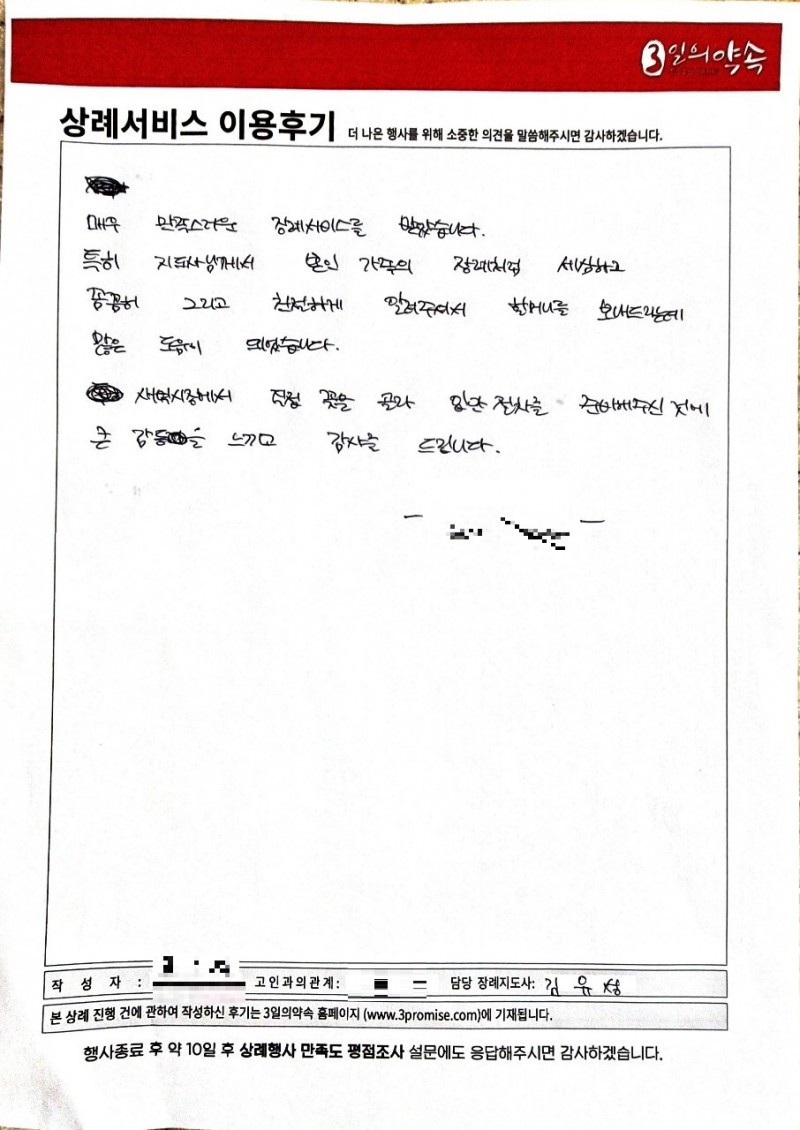 3일의약속
상례서비스 이용후기 더 나은 행사를 위해 소중한 의견을 말씀해주시면 감사하겠습니다.
매우 만족스러운 장례서비스를 받았습니다.
특히 지도사님께서 본인 가족의 장례처럼 세심하고
꼼꼼히 그리고 친절하게 알려주셔서 할머니를 보내드리는데
많은 도움이 되었습니다.
새벽시장에서 직접 꽃을 골라 입관 절차를 준비해주신 것에
큰 감동을 느끼고 감사를 드립니다.
작 성 자 : 고인과의관계: 담당 장례지도사: 김 유 성
본 상례 진행 건에 관하여 작성하신 후기는 3일의약속 홈페이지 (www.3promise.com)에 기재됩니다.
행사종료 후 약 10일 후 상례행사 만족도 평점조사 설문에도 응답해주시면 감사하겠습니다.